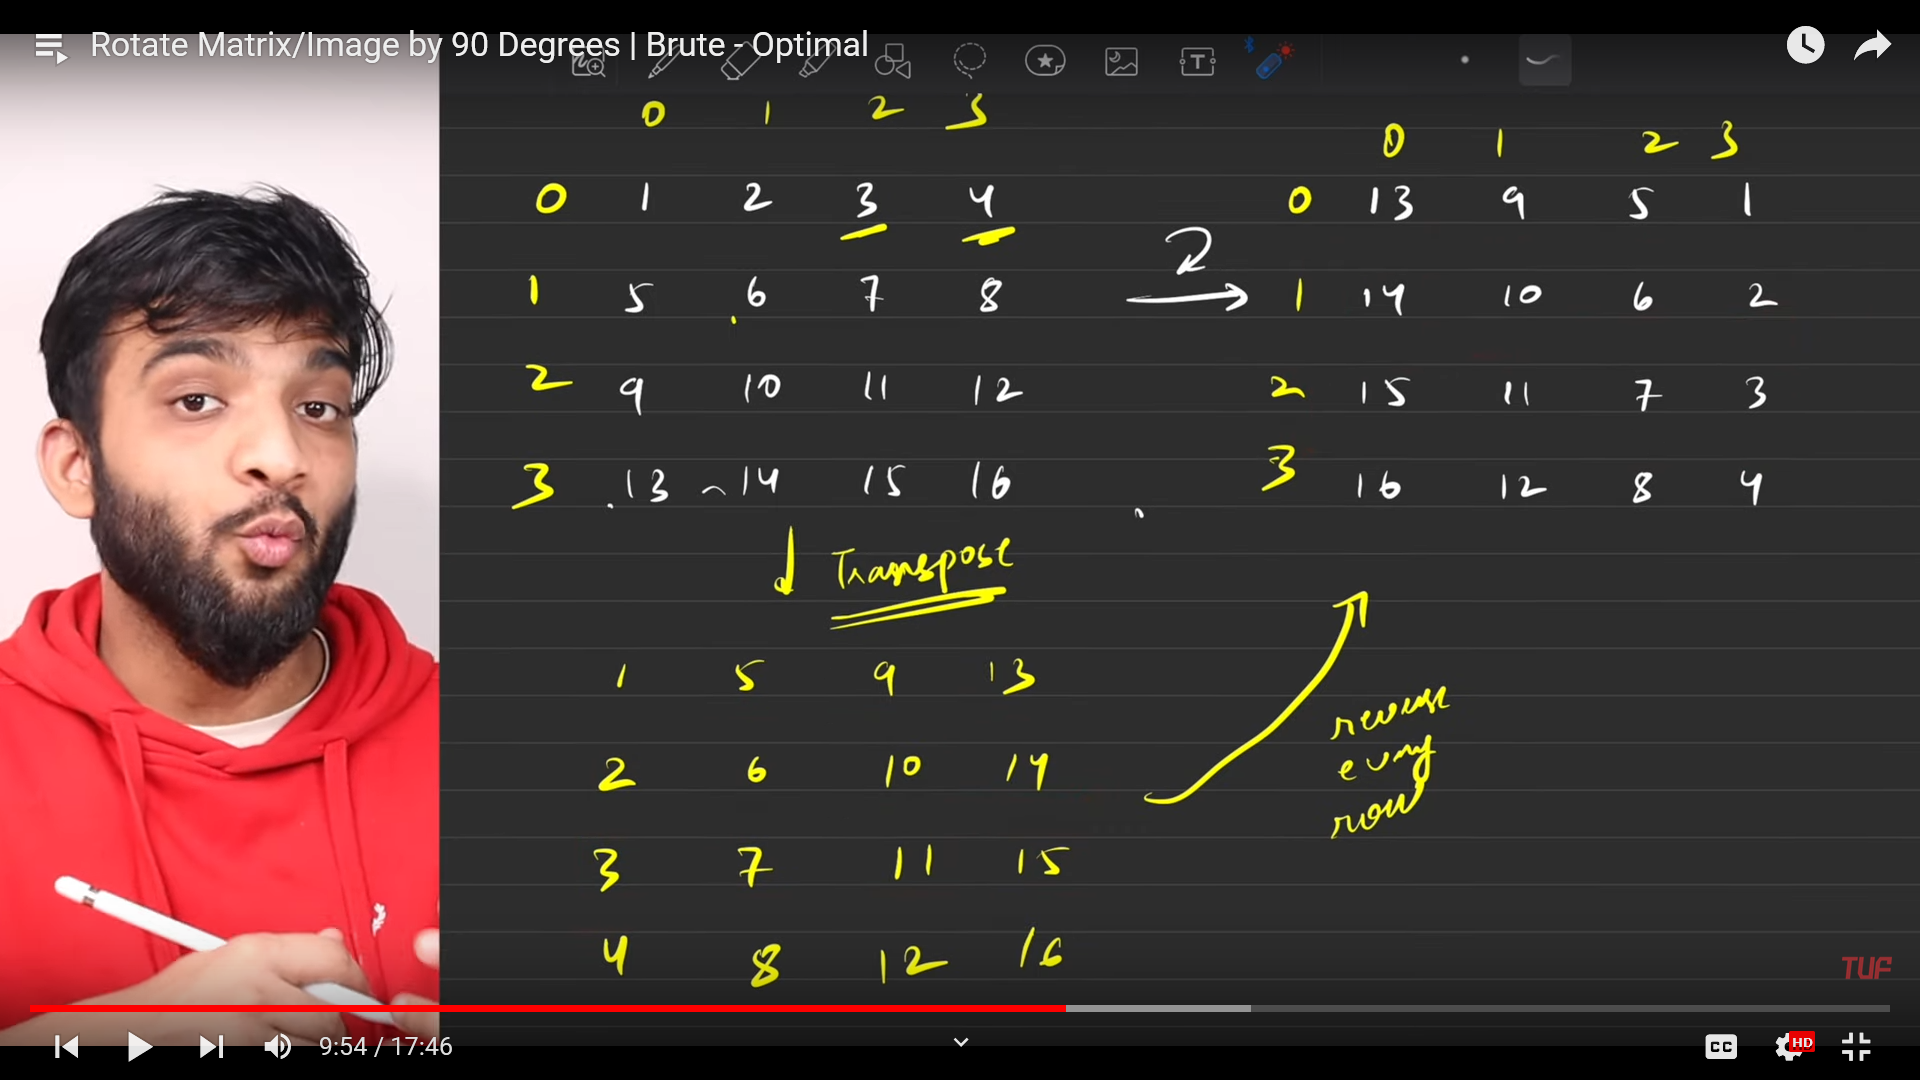 Rotate Matrix/Image by 90 Degrees | Brute - Optimal
0 1 2 3
0 1 2 3 4
1 5 6 7 8
2 9 10 11 12
3 13 14 15 16
0 1 2 3
0 13 9 5 1
1 14 10 6 2
2 15 11 7 3
3 16 12 8 4
Transpose
1 5 9 13
2 6 10 14
3 7 11 15
4 8 12 16
reverse
every
row
TUF
9:54 / 17:46
CC
HD